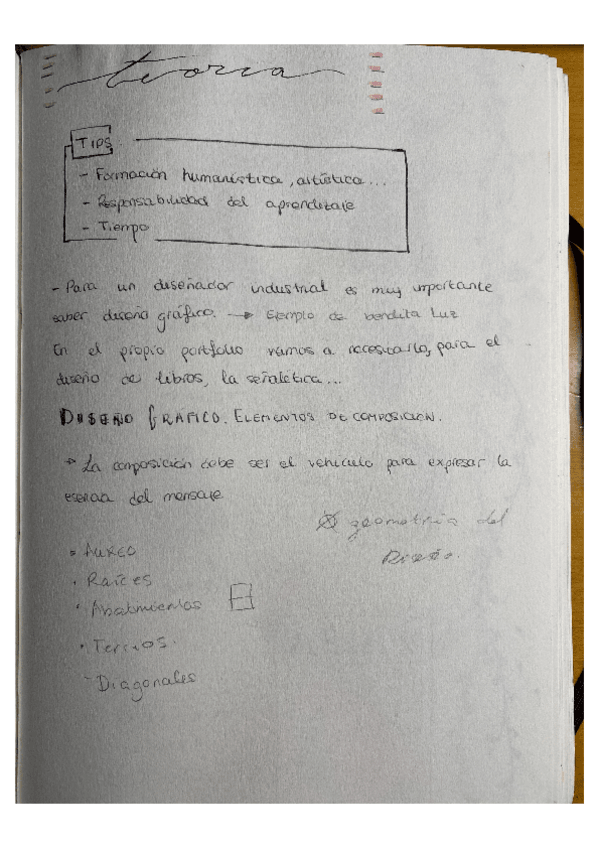 teoria
TIPS
- Formación humanística, artística...
- Responsabilidad del aprendizaje
- Tiempo
- Para un diseñador industrial es muy importante
saber diseño gráfico. → Ejemplo de bendita Luz
En el propio portfolio vamos a necesitarlo, para el
diseño de libros, la señalética...
DISEÑO GRÁFICO. ELEMENTOS DE COMPOSICIÓN.
La composición debe ser el vehículo para expresar la
esencia del mensaje
geometria del
Diseño.
• AUREO
• Raíces
• Abatimientos
• Tercios.
- Diagonales